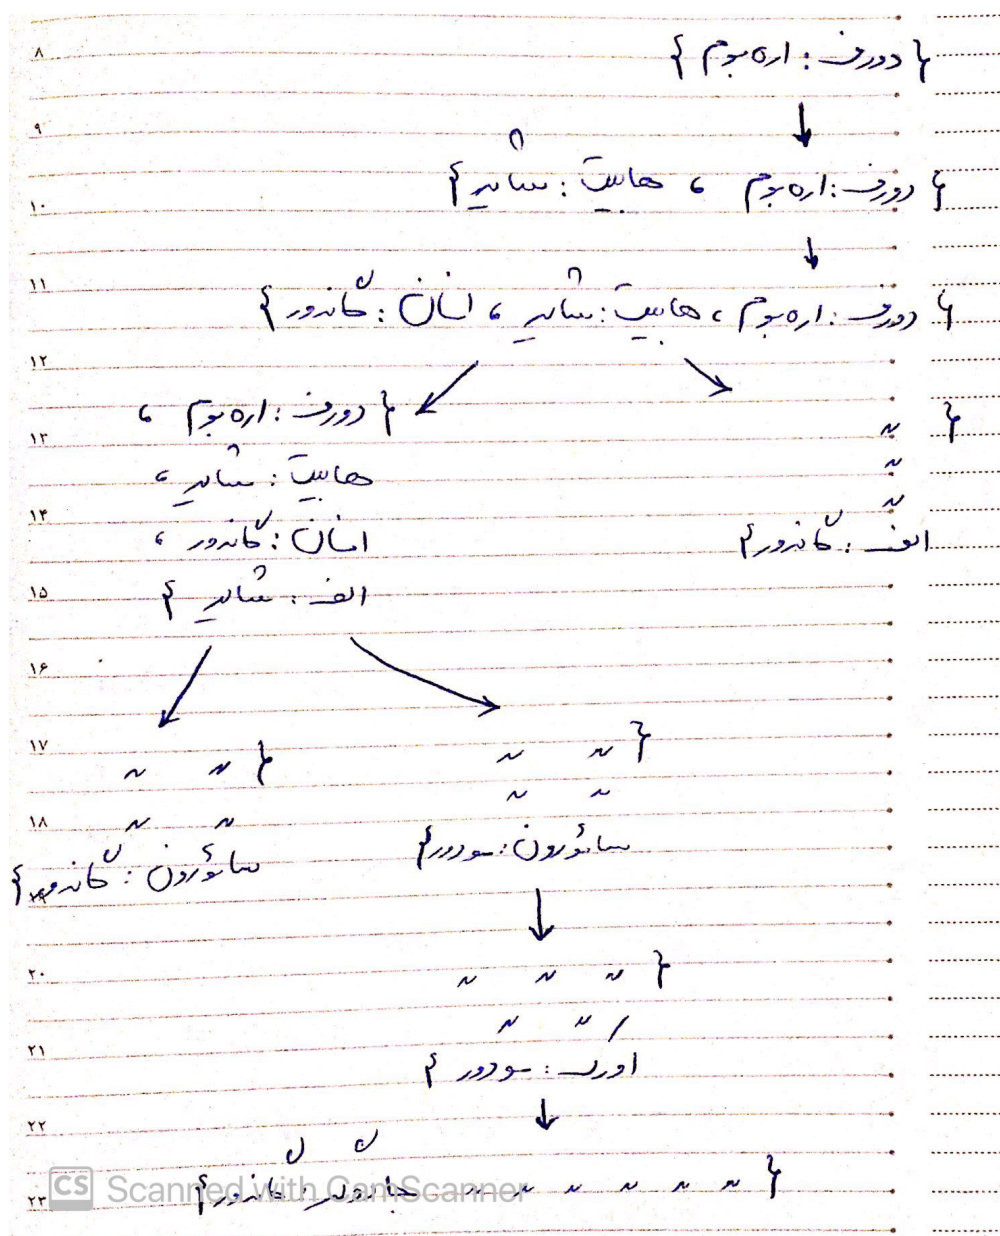 ۸ { دورف : اره بوم }
↓
۹
۱۰ { دورف : اره بوم ، هابیت : شایر }
↓
۱۱ { دورف : اره بوم ، هابیت : شایر ، انسان : گاندور }
۱۲
{ دورف : اره بوم ، { 〃
۱۳ 〃
هابیت : شایر ، 〃
۱۴ 〃
انسان : گاندور ، الف : گاندور }
۱۵ الف : شایر }
۱۶
۱۷ { 〃 〃 { 〃 〃
۱۸ 〃 〃 〃 〃
سائورون : موردور }
سائورون : گاندور }
۲۰ { 〃 〃 〃
۲۱ 〃 〃
اورک : موردور }
↓
۲۲
۲۳ { 〃 〃 〃 〃 〃 〃 : گاندور }
CS Scanned with CamScanner